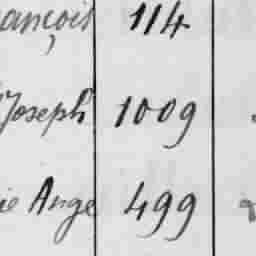 ançois 114
Joseph 1009
ie Ange 499